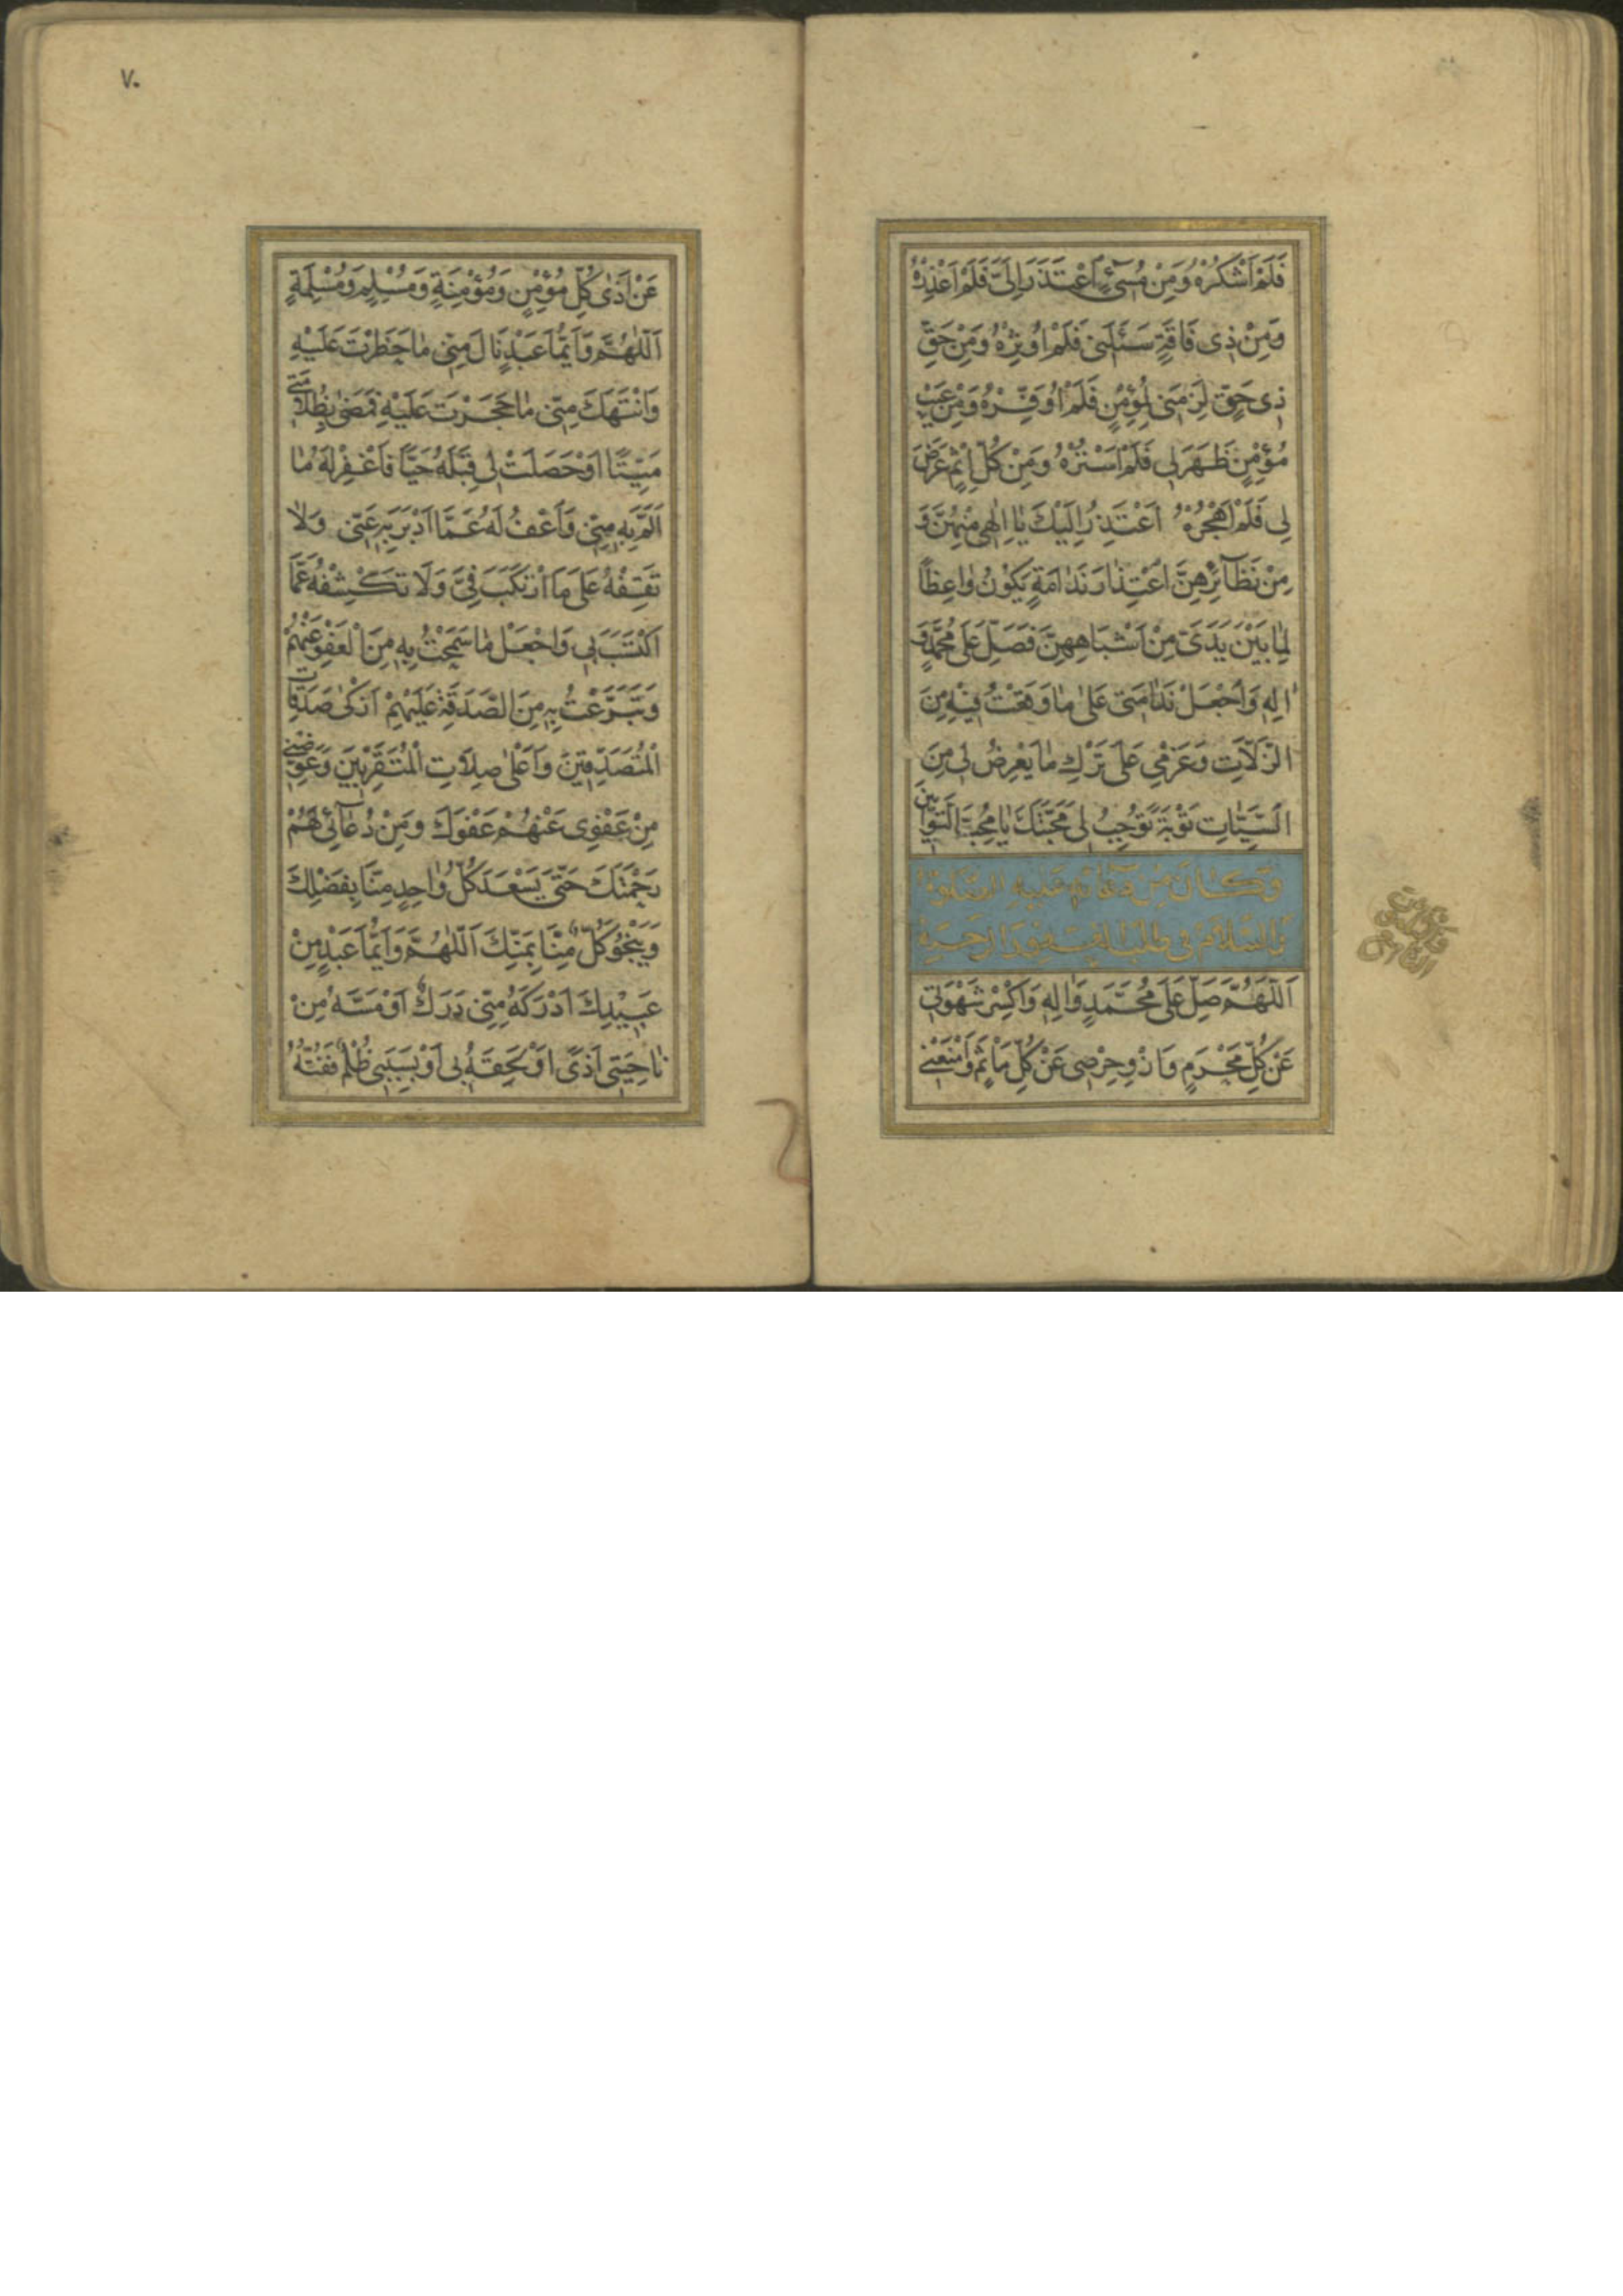 فَلَمْ اَشْكُرْهُ وَمِنْ مُسىٓءٍ اعْتَذَرَ اِلَىَّ فَلَمْ اَعْذِرْهُ
وَمِنْ ذى فَاقَةٍ سَئَلَنى فَلَمْ اُوثِرْهُ وَمِنْ حَقِّ
ذى حَقٍّ لَزِمَنى لِمُؤْمِنٍ فَلَمْ اُوَفِّرْهُ وَمِنْ عَيْبِ
مُؤْمِنٍ ظَهَرَ لى فَلَمْ اَسْتُرْهُ وَمِنْ كُلِّ اِثْمٍ عَرَضَ
لى فَلَمْ اَهْجُرْهُ اَعْتَذِرُ اِلَيْكَ يا اِلهى مِنْهُنَّ وَ
مِنْ نَظَآئِرِهِنَّ اعْتِذارَ نَدامَةٍ يَكُونُ واعِظاً
لِما بَيْنَ يَدَىَّ مِنْ اَشْبَاهِهِنَّ فَصَلِّ عَلى مُحَمَّدٍ وَ
الِهِ وَاجْعَلْ نَدامَتى عَلى ما وَقَعْتُ فيهِ مِنَ
الزَّلّاتِ وَعَزْمى عَلى تَرْكِ ما يَعْرِضُ لى مِنَ
السَّيِّئاتِ تَوْبَةً تُوجِبُ لى مَحَبَّتَكَ يا مُحِبَّ التَّوّابينَ
وَكانَ مِنْ دُعآئِهِ عَلَيْهِ الصَّلوةُ
وَالسَّلامُ فى طَلَبِ الْعَفْوِ وَالرَّحْمَةِ
اَللّهُمَّ صَلِّ عَلى مُحَمَّدٍ وَالِهِ وَاكْسِرْ شَهْوَتى
عَنْ كُلِّ مَحْرَمٍ وَازْوِ حِرْصى عَنْ كُلِّ مَاْثَمٍ وَامْنَعْنى
٧٠
عَنْ اَذى كُلِّ مُؤْمِنٍ وَمُؤْمِنَةٍ وَمُسْلِمٍ وَمُسْلِمَةٍ
اَللّهُمَّ وَاَيُّما عَبْدٍ نالَ مِنّى ما حَظَرْتَ عَلَيْهِ
وَانْتَهَكَ مِنّى ما حَجَرْتَ عَلَيْهِ فَمَضى بِظُلامَتى
مَيِّتًا اَوْ حَصَلَتْ لى قِبَلَهُ حَيًّا فَاغْفِرْ لَهُ ما
اَلَمَّ بِهِ مِنّى وَاعْفُ لَهُ عَمَّا اَدْبَرَ بِهِ عَنّى وَلا
تَقِفْهُ عَلى مَا ارْتَكَبَ فِىَّ وَلا تَكْشِفْهُ عَمَّا
اكْتَسَبَ بى وَاجْعَلْ ما سَمَحْتُ بِهِ مِنَ الْعَفْوِ عَنْهُمْ
وَتَبَرَّعْتُ بِهِ مِنَ الصَّدَقَةِ عَلَيْهِمْ اَزْكى صَدَقاتِ
الْمُتَصَدِّقينَ وَاَعْلى صِلاتِ الْمُتَقَرِّبينَ وَعَوِّضْنى
مِنْ عَفْوى عَنْهُمْ عَفْوَكَ وَمِنْ دُعآئى لَهُمْ
رَحْمَتَكَ حَتّى يَسْعَدَ كُلُّ واحِدٍ مِنّا بِفَضْلِكَ
وَيَنْجُوَ كُلٌّ مِنّا بِمَنِّكَ اَللّهُمَّ وَاَيُّما عَبْدٍ مِنْ
عَبيدِكَ اَدْرَكَهُ مِنّى دَرَكٌ اَوْ مَسَّهُ مِنْ
ناحِيَتى اَذًى اَوْ لَحِقَهُ بى اَوْ بِسَبَبى ظُلْمٌ فَفُتُّهُ